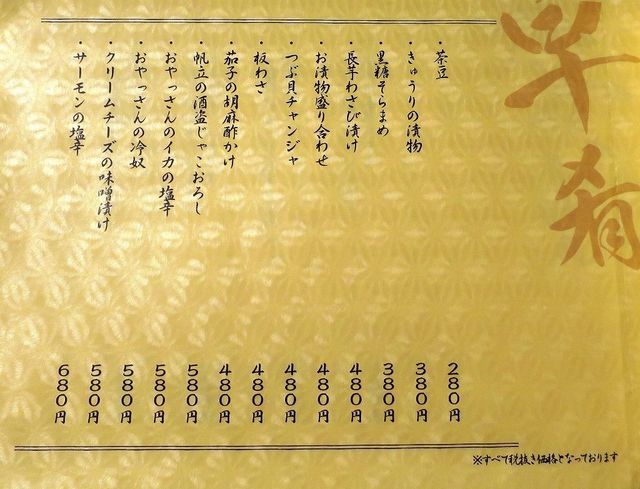 早肴
・茶豆 280円
・きゅうりの漬物 380円
・黒糖そらまめ 380円
・長芋わさび漬け 480円
・お漬物盛り合わせ 480円
・つぶ貝チャンジャ 480円
・板わさ 480円
・茄子の胡麻酢かけ 480円
・帆立の酒盗じゃこおろし 580円
・おやっさんのイカの塩辛 580円
・おやっさんの冷奴 580円
・クリームチーズの味噌漬け 580円
・サーモンの塩辛 680円
※すべて税抜き価格となっております